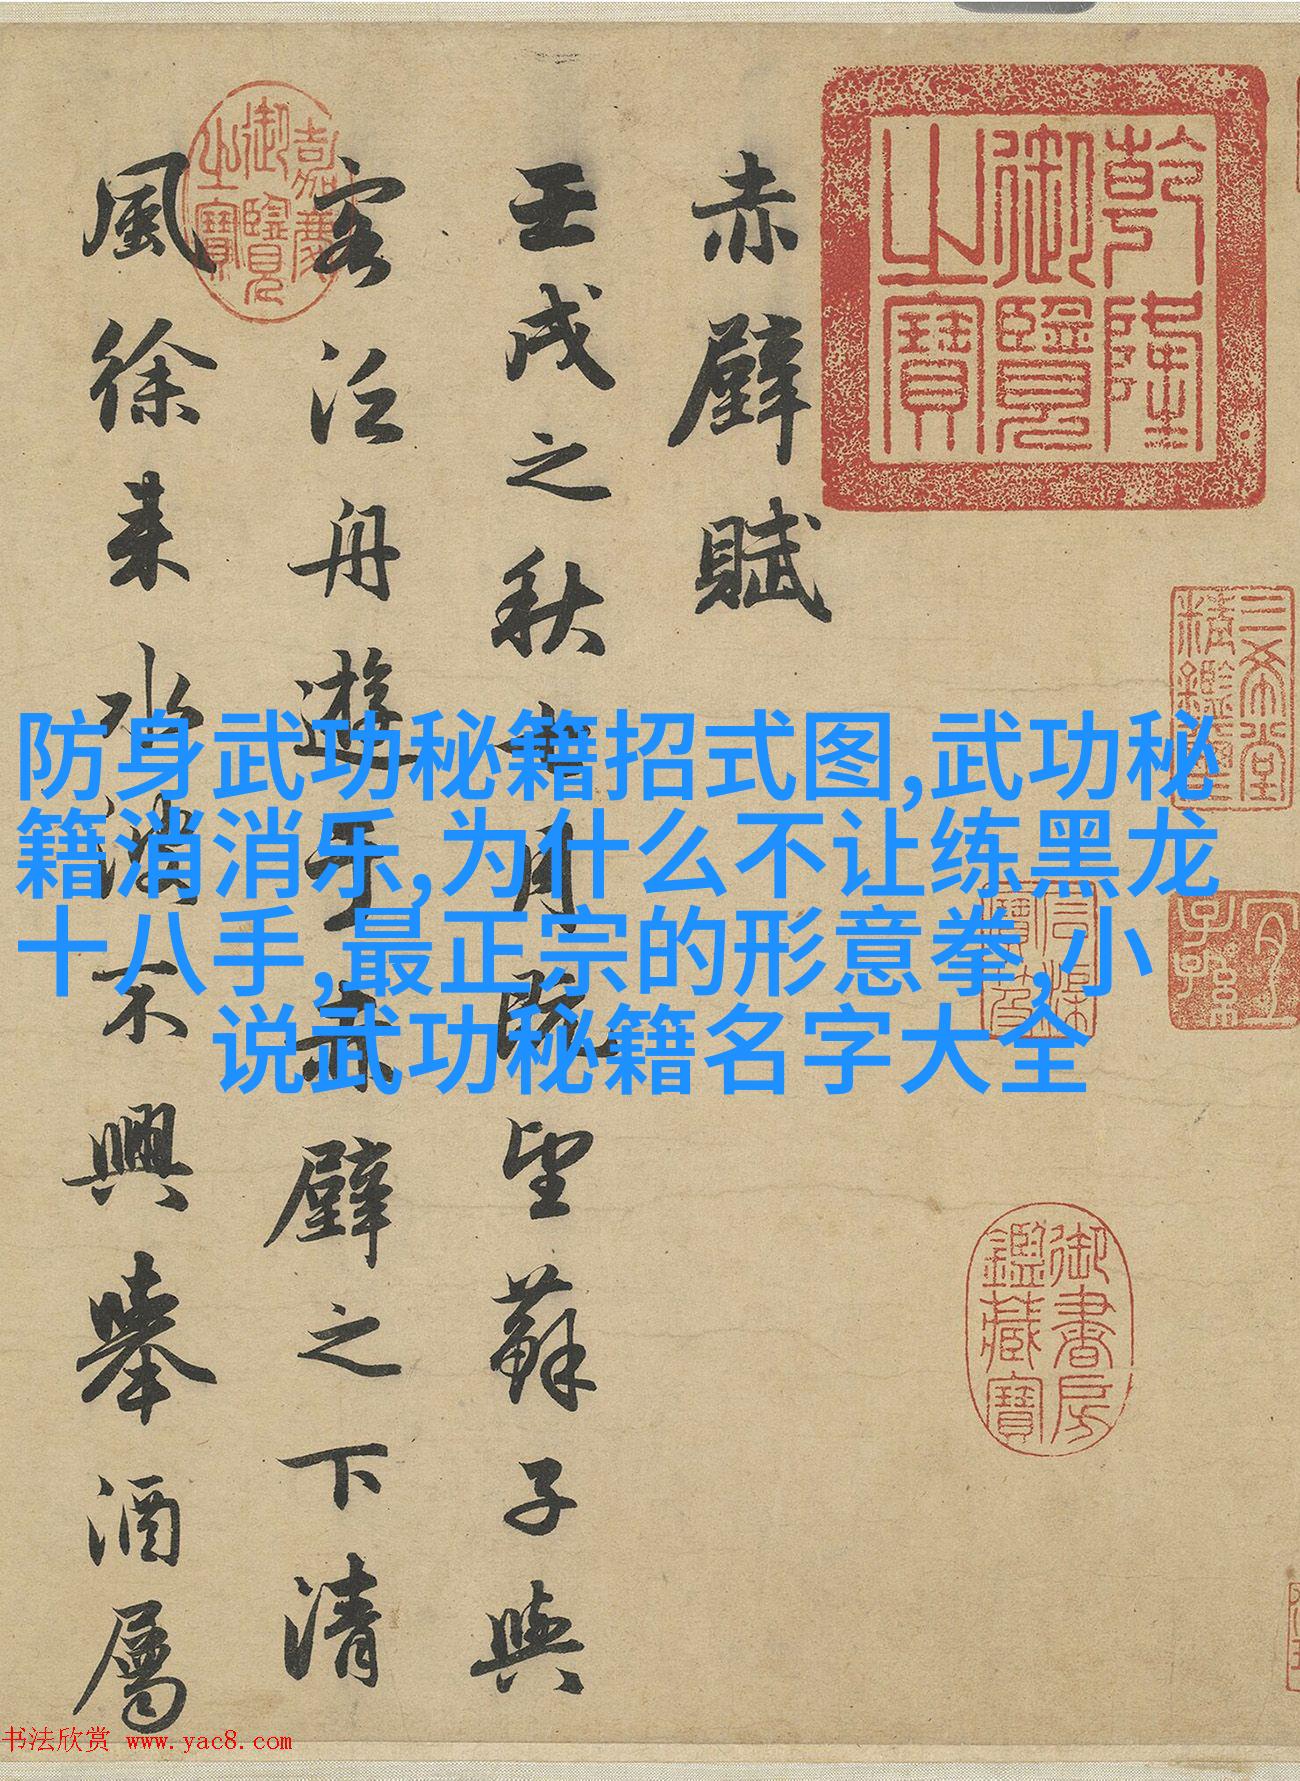 乾隆
御覽
之寶
赤壁賦
壬戌之秋七月既望蘇子與
客泛舟遊于赤壁之下清
風徐来水波不興舉酒屬
嘉慶
御覽
之寶
三希堂
精鑑璽
宜
子孫
御書房
鑑藏寶
防身武功秘籍招式图,武功秘
籍消消乐,为什么不让练黑龙
十八手,最正宗的形意拳,小
说武功秘籍名字大全
书法欣赏 www.yac8.com